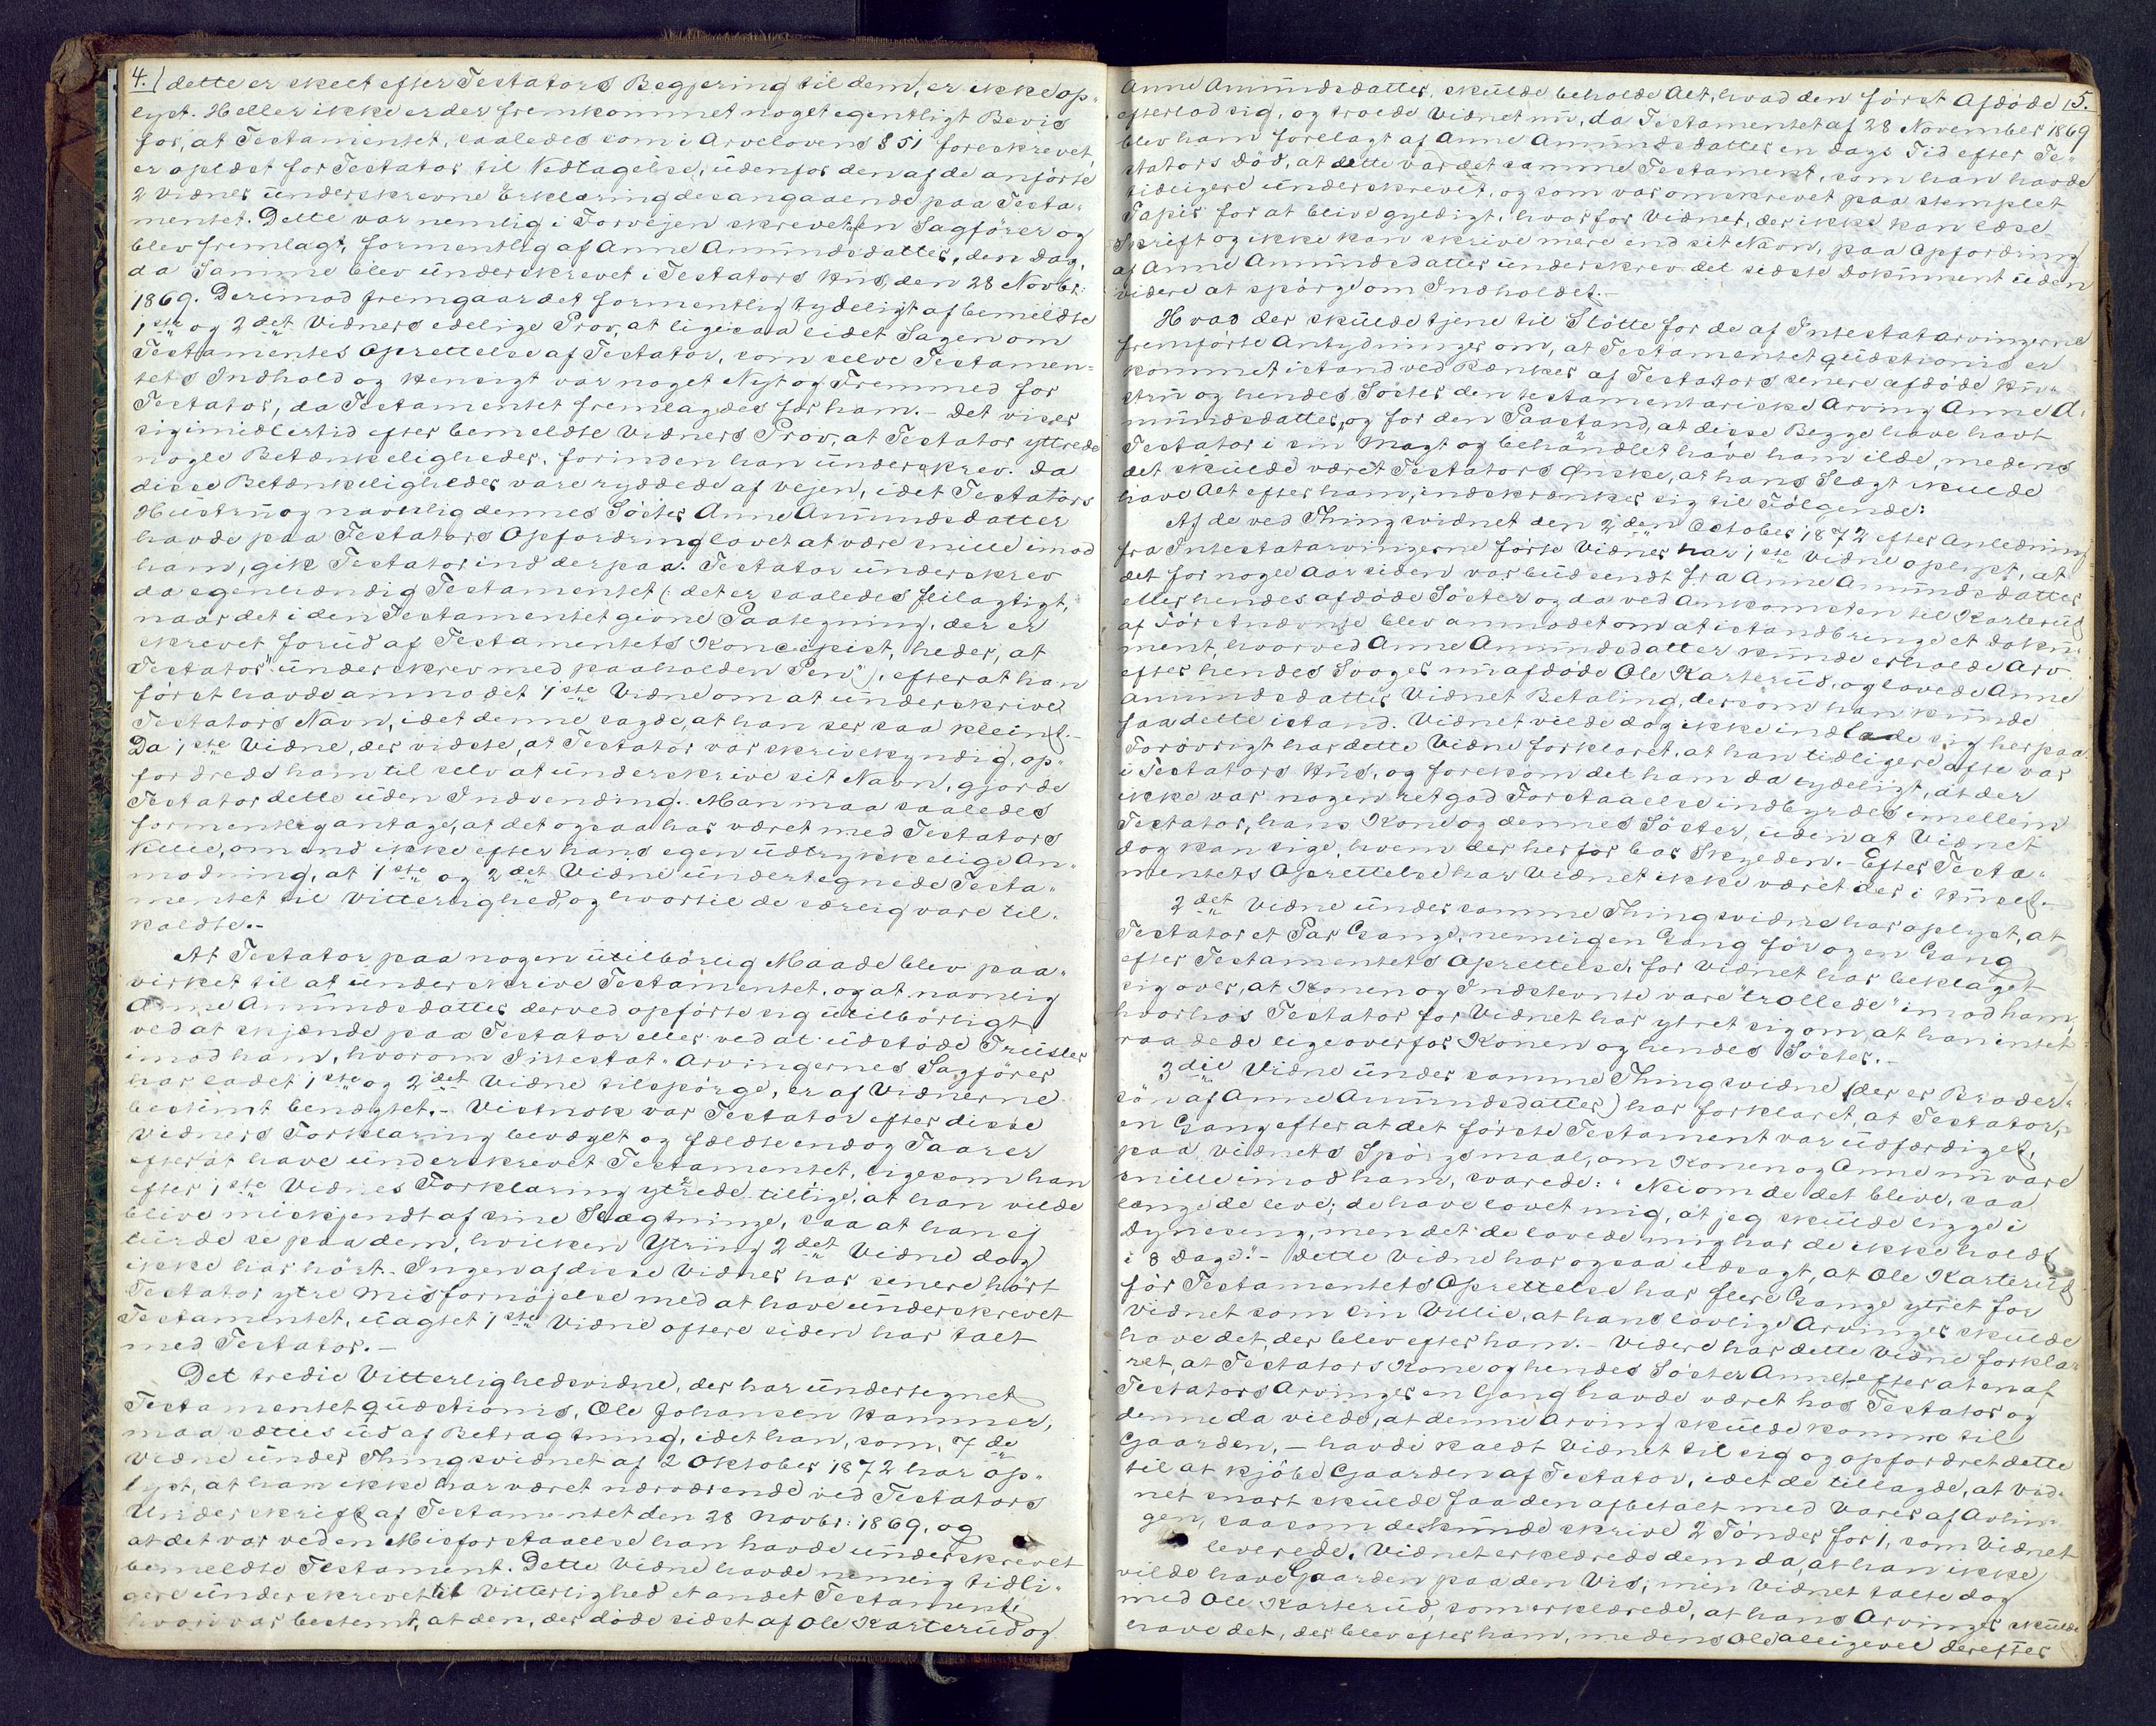 4.
dette er skeet efter Testators Begjering til dem, er ikke op-
lyst. Heller ikke er der fremkommet noget egentligt Bevis
for, at Testamentet, saaledes som i Arvelovens § 51 foreskrevet,
er oplæst for Testator til Vedtagelse, udenfor den af de anførte
2 Vidner underskrevne Erklæring desangaaende paa Testa-
mentet. Dette var nemlig i Forvejen skrevet af en Sagfører og
blev fremlagt, formentlig af Anne Amundsdatter, den Dag,
da Samme blev underskrevet i Testators Hus, den 28 Novbr:
1869. Deremod fremgaar det formentlig tydeligt af bemeldte
1ste og 2det Vidners edelige Prov, at ligesaa lidet Sagen om
Testamentets Oprettelse af Testator, som selve Testamen-
tets Indhold og Hensigt var noget Nyt og Fremmed for
Testator, da Testamentet fremlagdes for ham. – Det viser
sig imidlertid efter bemeldte Vidners Prov, at Testator yttrede
nogle Betænkeligheder, forinden han underskrev. Da
disse Betænkeligheder vare ryddede af Vejen, idet Testators
Hustru og navnlig dennes Søster Anne Amundsdatter
havde paa Testators Opfordring lovet at være snille imod
ham, gik Testator ind derpaa. Testator underskrev
da egenhændig Testamentet (: det er saaledes feilagtigt,
naar det i den Testamentet givne Paategning, der er
skrevet forud af Testamentets Koncipist, heder, at
Testator "underskrev med paaholden Pen"), efterat han
først havde anmodet 1ste Vidne om at underskrive
Testators Navn, idet denne sagde, at han ser saa kleint. –
Da 1ste Vidne, der vidste, at Testator var skrivekyndig, op-
fordrede ham til selv at underskrive sit Navn, gjorde
Testator dette uden Indvending. Man maa saaledes
formentlig antage, at det ogsaa har været med Testators
Villie, om end ikke efter hans egen udtrykkelige An-
modning, at 1ste og 2det Vidne undertegnede Testa-
mentet til Vitterlighed, og hvortil de særlig vare til-
kaldte. –
At Testator paa nogen utilbørlig Maade blev paa-
virket til at underskrive Testamentet, og at navnlig
Anne Amundsdatter derved opførte sig utilbørligt
ved at skjænde paa Testator eller ved at udstøde Trusler
imod ham, hvorom Intestat-Arvingernes Sagfører
har ladet 1ste og 2det Vidne tilspørge, er af Vidnerne
bestemt benægtet. – Vistnok var Testator efter disse
Vidners Forklaring bevæget og fældte endog Taarer
efterat have underskrevet Testamentet, ligesom han
efter 1ste Vidnes Forklaring yttrede tillige, at han vilde
blive miskjendt af sine Slægtninge, saa at han ej
turde se paa dem, hvilken Ytring 2det Vidne dog
ikke har hørt. Ingen af disse Vidner har senere hørt
Testator ytre Misfornøjelse med at have underskrevet
Testamentet, uagtet 1ste Vidne oftere siden har talt
med Testator. –
Det tredie Vitterlighedsvidne, der har undertegnet
Testamentet quæstionis, Ole Johansen Hammer,
maa sættes ud af Betragtning, idet han, som 7de
Vidne under Thingsvidnet af 2 Oktober 1872 har op-
lyst, at han ikke har været nærværende ved Testators
Underskrift af Testamentet den 28 Novbr: 1869, og
at det var ved en Misforstaaelse han havde underskrevet
bemeldte Testament. Dette Vidne havde nemlig tidli-
gere underskrevet til Vitterlighed et andet Testamente
hvori var bestemt, at den, der døde sidst af Ole Karterud og
5.
Anne Amundsdatter, skulde beholde Alt, hvad den først Afdøde
efterlod sig, og troede Vidnet nu, da Testamentet af 28 November 1869
blev ham forelagt af Anne Amundsdatter en Dags Tid efter Te-
stators Død, at dette var det samme Testament, som han havde
tidligere underskrevet, og som var omskrevet paa stemplet
Papir for at blive gyldigt, hvorfor Vidnet, der ikke kan læse
Skrift og ikke kan skrive mere end sit Navn, paa Opfordring
af Anne Amundsdatter underskrev det sidste Dokument uden
videre at spørge om Indholdet. –
Hvad der skulde tjene til Støtte for de af Intestatarvingerne
fremførte Antydninger om, at Testamentet quæstionis er
kommet istand ved Rænker af Testators senere afdøde Hu-
stru og hendes Søster den testamentariske Arving Anne A-
mundsdatter, og for den Paastand, at disse Begge have havt
Testator i sin Magt og behandlet have ham ilde, medens
det skulde været Testators Ønske, at hans Slægt skulde
have Alt efter ham, indskrænker sig til Følgende:
Af de ved Thingsvidnet den 2den October 1872 efter Anledning
fra Intestatarvingerne førte Vidner har 1ste Vidne oplyst, at
det for nogle Aar siden var budsendt fra Anne Amundsdatter
eller hendes afdøde Søster og da ved Ankomsten til Karterud
af Førstnævnte blev anmodet om at istandbringe et Doku-
ment, hvorved Anne Amundsdatter kunde erholde Arv
efter hendes Svoger nu afdøde Ole Karterud, og lovede Anne
Amundsdatter Vidnet Betaling, dersom han kunde
faa dette istand. Vidnet vilde dog ikke indlade sig herpaa.
Forøvrigt har dette Vidne forklaret, at han tidligere ofte var
i Testators Hus, og forekom det ham da tydeligt, at der
ikke var nogen ret god Forstaaelse indbyrdes imellem
Testator, hans Kone og dennes Søster, uden at Vidnet
dog kan sige, hvem der herfor bar Skylden. – Efter Testa-
mentets Oprettelse har Vidnet ikke været der i Huset. –
2det Vidne under samme Thingsvidne har oplyst, at
Testator et Par Gange, nemlig en Gang før og en Gang
efter Testamentets Oprettelse, for Vidnet har beklaget
sig over, at Konen og Indstevnte vare "trollede" imod ham,
hvorhos Testator for Vidnet har ytret sig om, at han intet
raadede ligeoverfor Konen og hendes Søster. –
3die Vidne under samme Thingsvidne (der er Broder-
søn af Anne Amundsdatter) har forklaret, at Testator,
en Gang efter at det første Testament var udfærdiget,
paa Vidnets Spørgsmaal, om Konen og Anne nu vare
snille imod ham, svarede: "Nei om de det blive, saa
længe de leve; de have lovet mig, at jeg skulde ligge i
Dyneseng, men det de lovede mig har de ikke holdt
i 8 Dage." – Dette Vidne har ogsaa udsagt, at Ole Karterud
før Testamentets Oprettelse har flere Gange ytret for
Vidnet som sin Villie, at hans lovlige Arvinger skulde
have det, der blev efter ham. – Videre har dette Vidne forkla-
ret, at Testators Kone og hendes Søster Anne, – efter at en af
Testators Arvinger en Gang havde været hos Testator og
denne da vilde, at denne Arving skulde komme til
Gaarden, – havde kaldt Vidnet til sig og opfordret dette
til at kjøbe Gaarden af Testator, idet de tillagde, at Vid-
net snart skulde faa den afbetalt med Varer af Avlin-
gen, saasom de kunde skrive 2 Tønder for 1, som Vidnet
leverede. Vidnet erklærede dem da, at han ikke
vilde have Gaarden paa den Vis; men Vidnet talte dog
med Ole Karterud, som erklærede, at hans Arvinger skulde
have det, der blev efter ham, medens Ole alligevel derefter